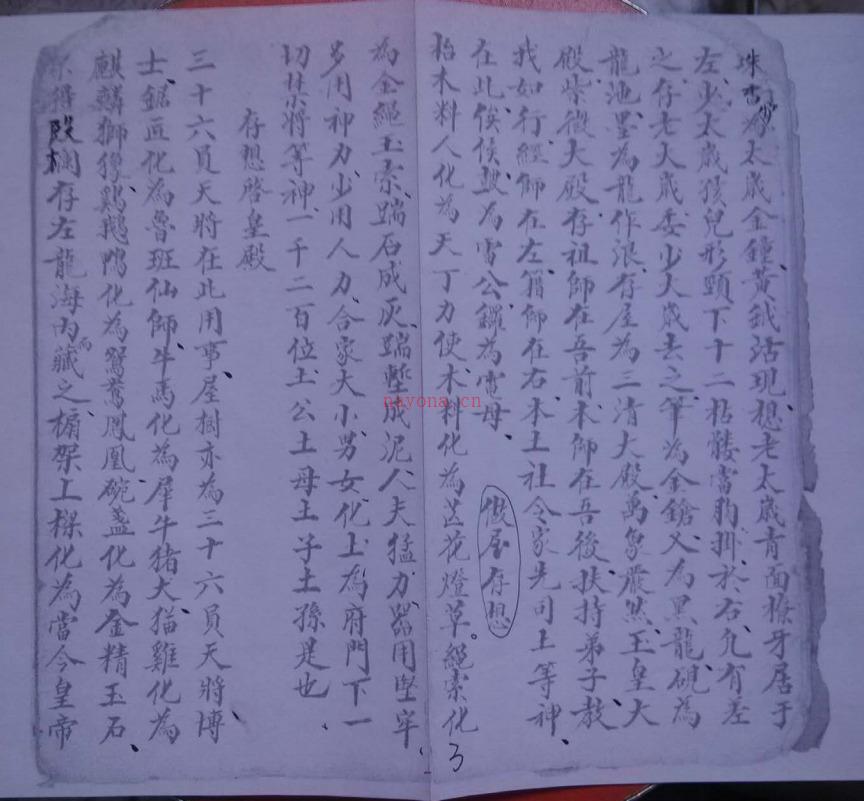 珠杏為太歲金鐘黃鉞活現、想老太歲青面獠牙居于
左、少太歲孩兒形頸下十二骷髏當胸掛於右、凡有差
之、存老太歲委少太歲去之、筆為金鎗又為黑龍、硯為
龍池、墨為龍作浪、存屋為三清大殿萬象嚴然、玉皇大
殿、紫微大殿、存祖師在吾前本師在吾後、扶持弟子教
我如行、經師在左、籍師在右、本土社令家先司土等神、
在此俟候、鼓為雷公鑼為電母、
做屋存想
抬木料人化為天丁力使、木料化為芒花燈草。繩索化
為金繩玉索、踹石成灰、踹塹成泥、人夫猛力、器用堅牢
多用神力、少用人力、合家大小男女化上為府門下一
切禁將等神、一千二百位土公土母土子土孫是也、
存想啓皇殿
三十六員天將在此用事、屋樹亦為三十六員天將、博
士、鋸匠化為魯班仙師、牛馬化為犀牛、猪犬猫雞化為
麒麟獅獴、鷄鵝鴨化為鴛鴦鳳凰、碗盞化為金精玉石、
得段欄存左龍海內而藏之、橱架上樑化為當今皇帝
nayona.cn
3